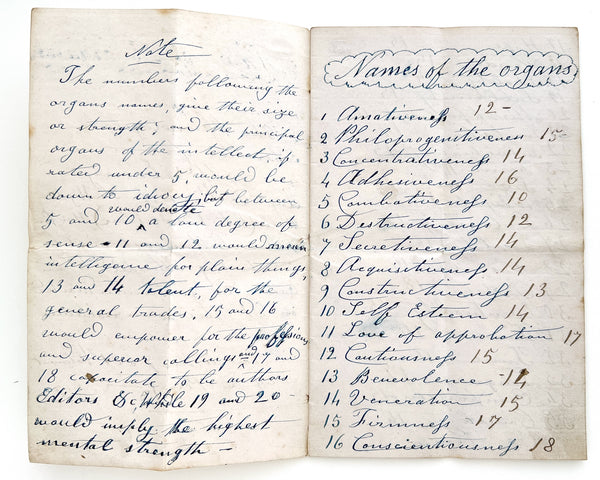 Note
The numbers following the
organs names, give their size
or strength; and the principal
organs of the intellect, if
rated under 5 would be
down to idiocy, but between
5 and 10 would denote a low degree of
sense - 11 and 12 would mean
intelligence for plain things,
13 and 14 talent, for the
general trades, 15 and 16
would empower for the professions
and superior callings and 17 and
18 capacitate to be authors
Editors &c, While 19 and 20 -
would imply the highest
mental strength -
Names of the organs
1 Amativeness 12 -
2 Philoprogenitiveness 15 -
3 Concentrativeness 14
4 Adhesiveness 16
5 Combativeness 10
6 Destructiveness 12
7 Secretiveness 14
8 Acquisitiveness 14
9 Constructiveness 13
10 Self Esteem 14
11 Love of approbation 17
12 Cautiousness 15
13 Benevolence - 14
14 Veneration 15
15 Firmness - 17
16 Conscientiousness 18